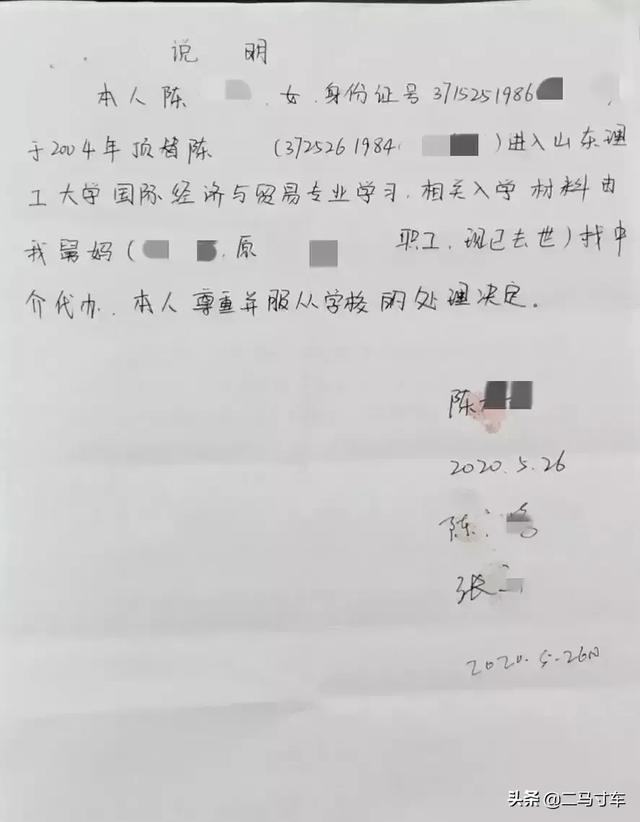 说 明
本人陈 ，女，身份证号3715251986 ，
于2004年顶替陈 （3725261984 ）进入山东理
工大学国际经济与贸易专业学习，相关入学材料由
我舅妈（ ，原 职工，现已去世）找中
介代办，本人尊重并服从学校的处理决定。
陈
2020.5.26
陈
张
2020.5.26
头条 @二马寸车